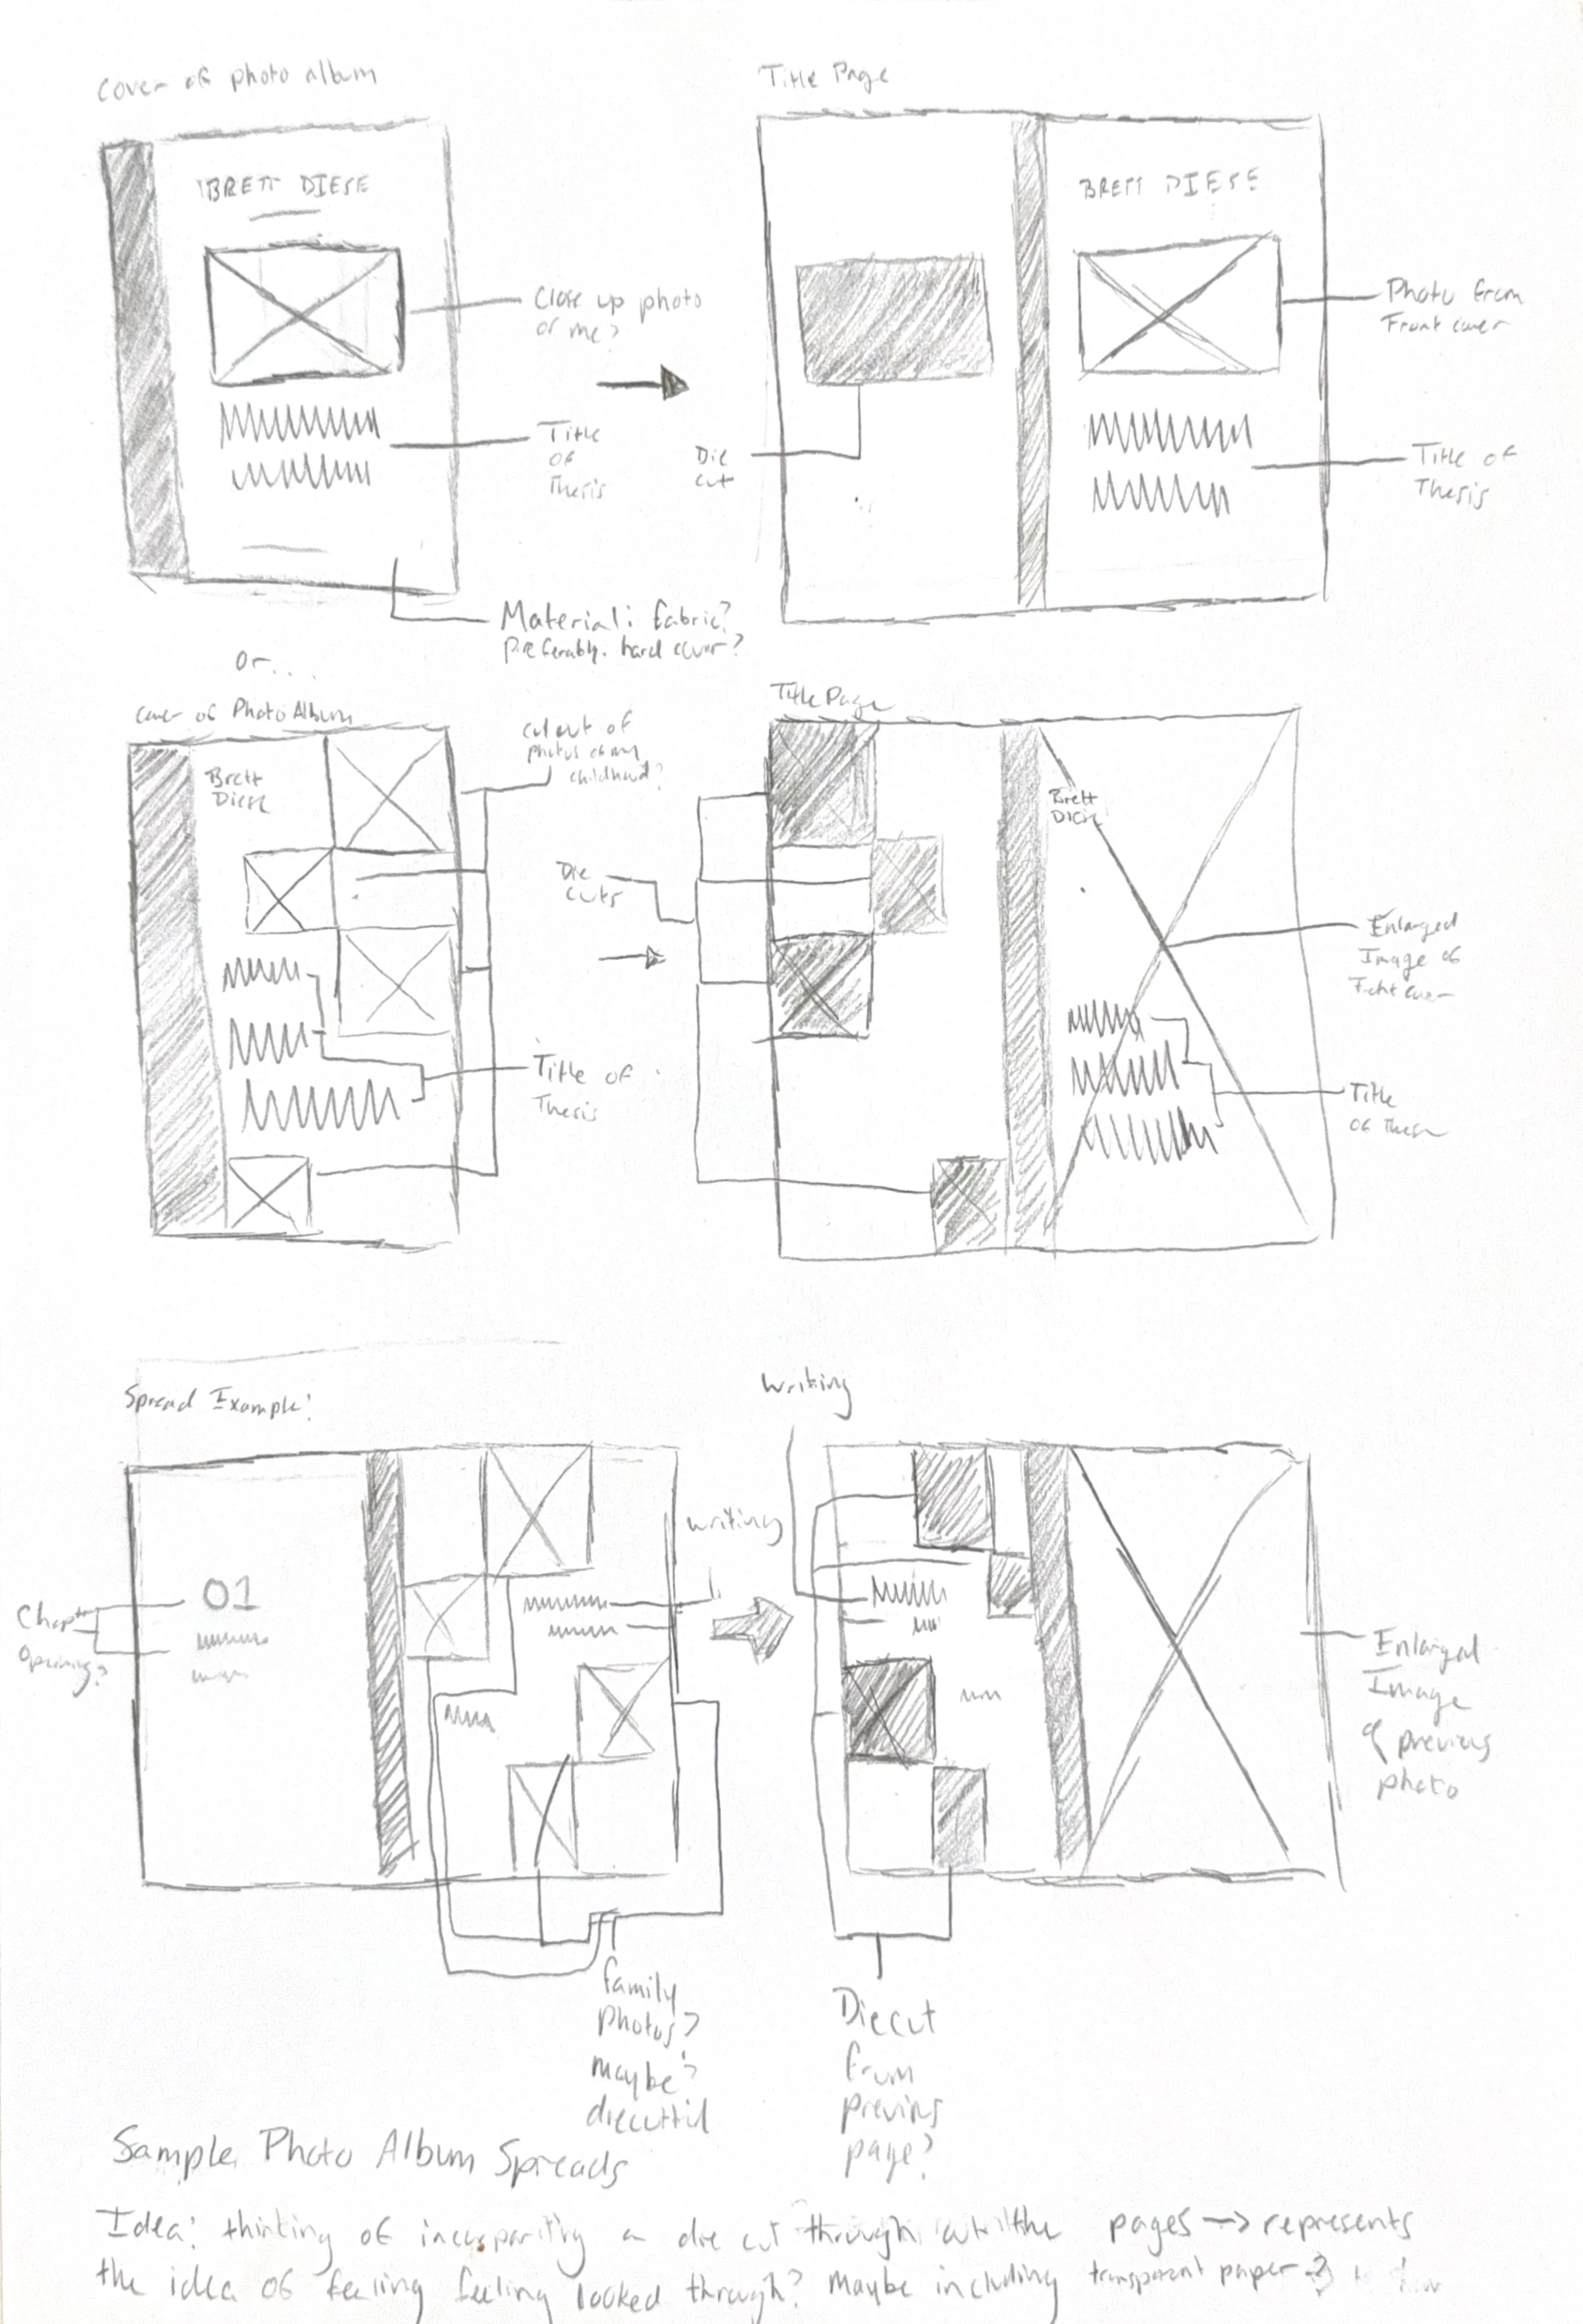 Cover of photo album
BRETT DIESE
Close up photo
of me?
Title
of
Thesis
Material: fabric?
preferably. hard cover?
Title Page
BRETT DIESE
Die
cut
Photo from
Front cover
Title of
Thesis
Or...
Cover of Photo Album
Brett
Diese
cut out of
photos of my
childhood?
Title of
Thesis
Title Page
Brett
Die
cuts
Enlarged
Image of
Front cover
Title
of Thesis
Spread Example:
Chapter
Opening?
01
writing
family
photos?
maybe?
diecuttid
writing
Enlarged
Image
of previous
photo
Diecut
from
previous
page?
Sample Photo Album Spreads
Idea: thinking of a die cut through out the pages → represents
the idea of feeling feeling looked through? Maybe including transparent paper?